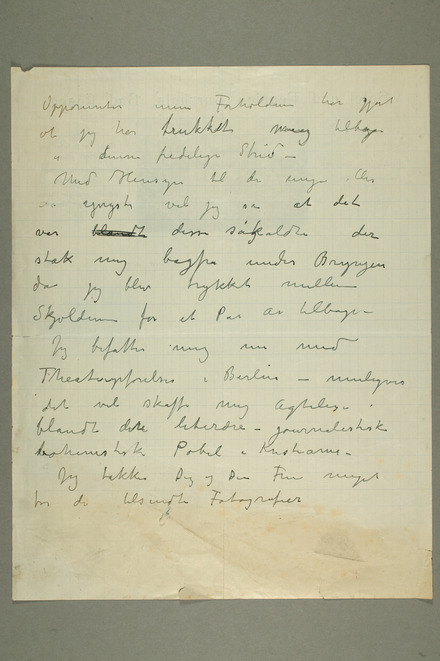 mine Forholdene har gjort
at jeg har trukket meg tilbage
i denne Strid –
Med Hensyn til de unge eller
de yngste vil jeg si at det
var blandt disse såkaldte der
stak mig bagfra under Brynjen
da jeg blev trykket mellem
Skjoldene for et Par År tilbage –
Jeg befatter mig nu med
Theateropførelser i Berlin – muligens
det vil skaffe mig Agtelse –
blandt dette literære – journalistisk
bohemistisk Pøbel i Kristiania –
Jeg takker Dig og Din Frue meget
for de tilsendte Fotografier